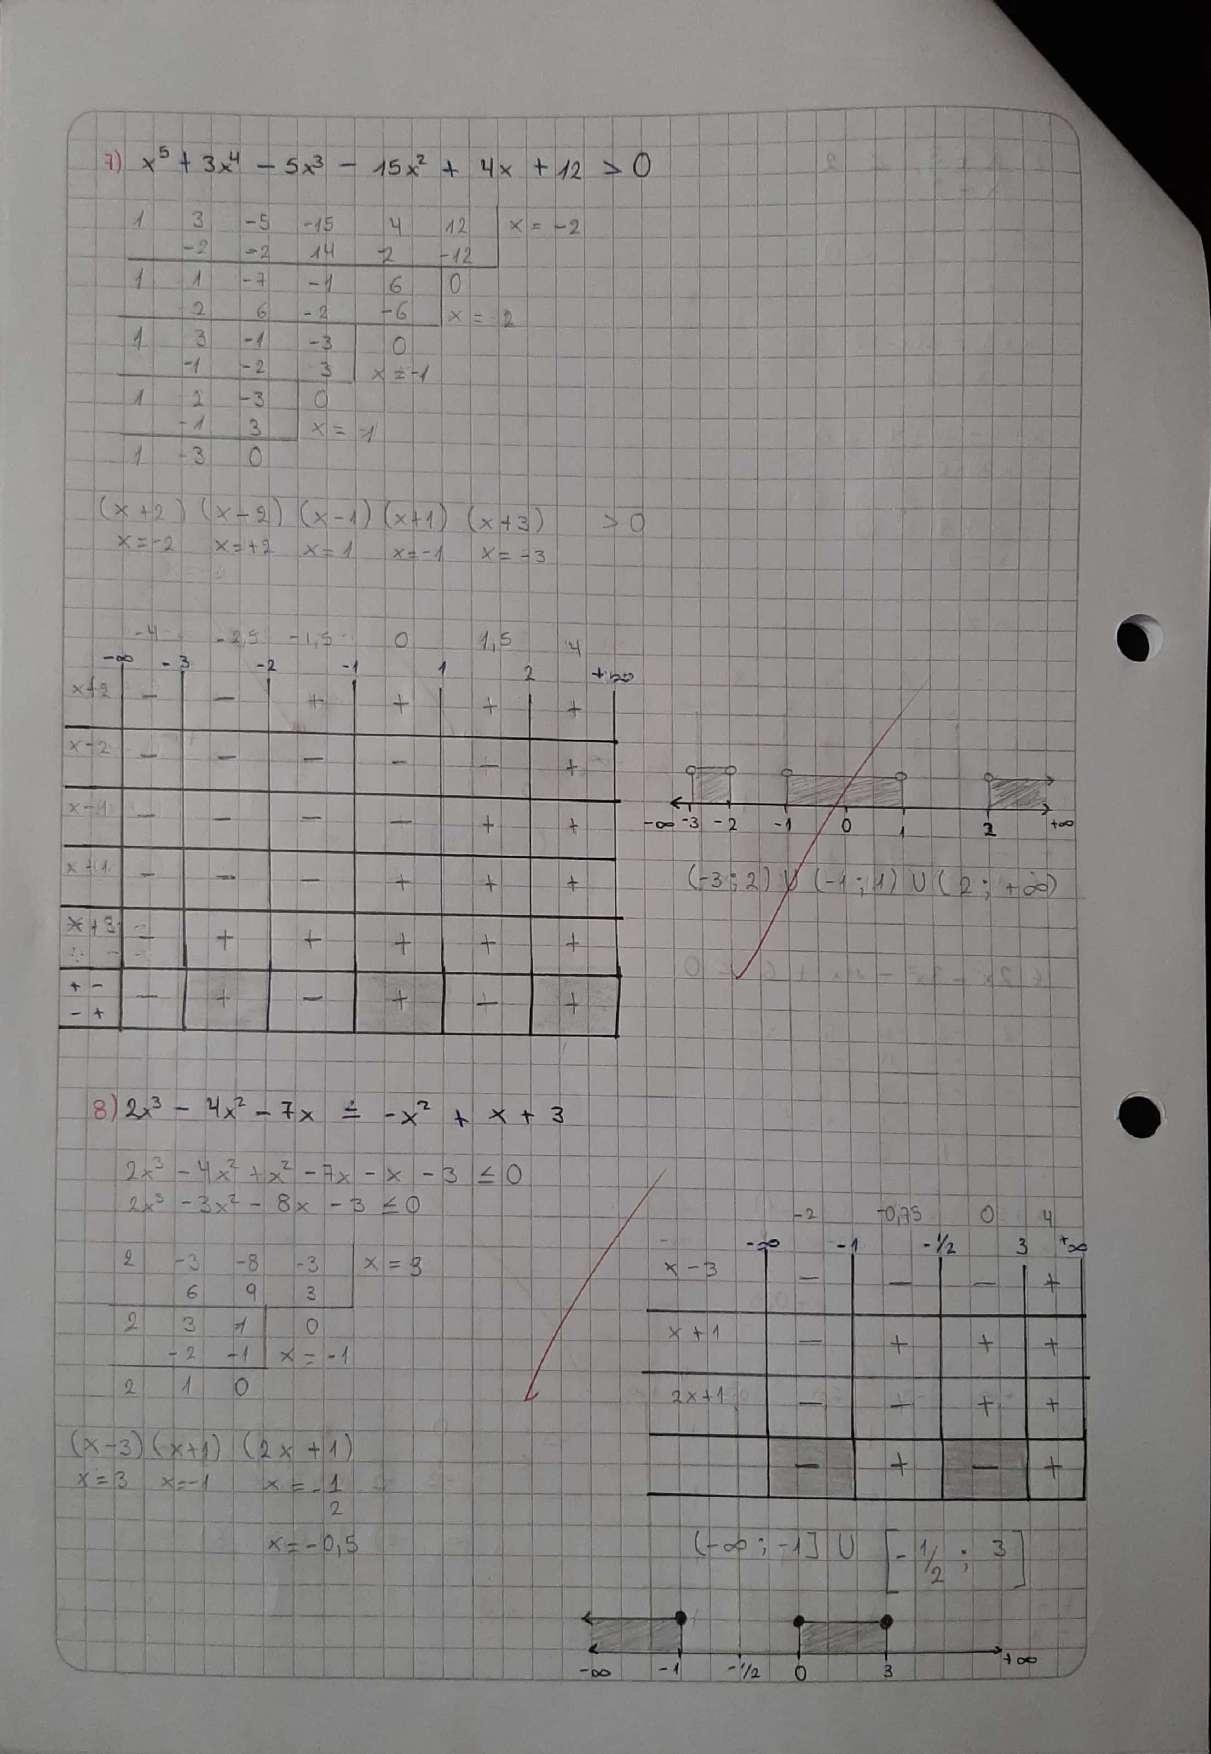 7) x⁵ + 3x⁴ - 5x³ - 15x² + 4x + 12 > 0
1 3 -5 -15 4 12 x = -2
-2 -2 14 2 -12
1 1 -7 -1 6 0
2 6 -2 -6 x = 2
1 3 -1 -3 0
-1 -2 3 x = -1
1 2 -3 0
-1 3 x = -1
1 -3 0
(x+2) (x-2) (x-1) (x+1) (x+3) > 0
x=-2 x=+2 x=1 x=-1 x=-3
-4 -2,5 -1,5 0 1,5 4
-∞ -3 -2 -1 1 2 +∞
x+2 - - + + + +
x-2 - - - - - +
x-1 - - - - + +
x+1 - - - + + +
x+3 - + + + + +
+ -
- + - + - + - +
-∞ -3 -2 -1 0 1 2 +∞
(-3;2) U (-1;1) U (2; +∞)
8) 2x³ - 4x² - 7x ≤ -x² + x + 3
2x³ - 4x² + x² - 7x - x - 3 ≤ 0
2x³ - 3x² - 8x - 3 ≤ 0
2 -3 -8 -3 x = 3
6 9 3
2 3 1 0
-2 -1 x = -1
2 1 0
(x-3) (x+1) (2x+1)
x=3 x=-1 x = -1
2
x=-0,5
-2 -0,75 0 4
-∞ -1 -1/2 3 +∞
x-3 - - - +
x+1 - + + +
2x+1 - + + +
- + - +
(-∞;-1] U [-1/2; 3]
-∞ -1 -1/2 0 3 +∞